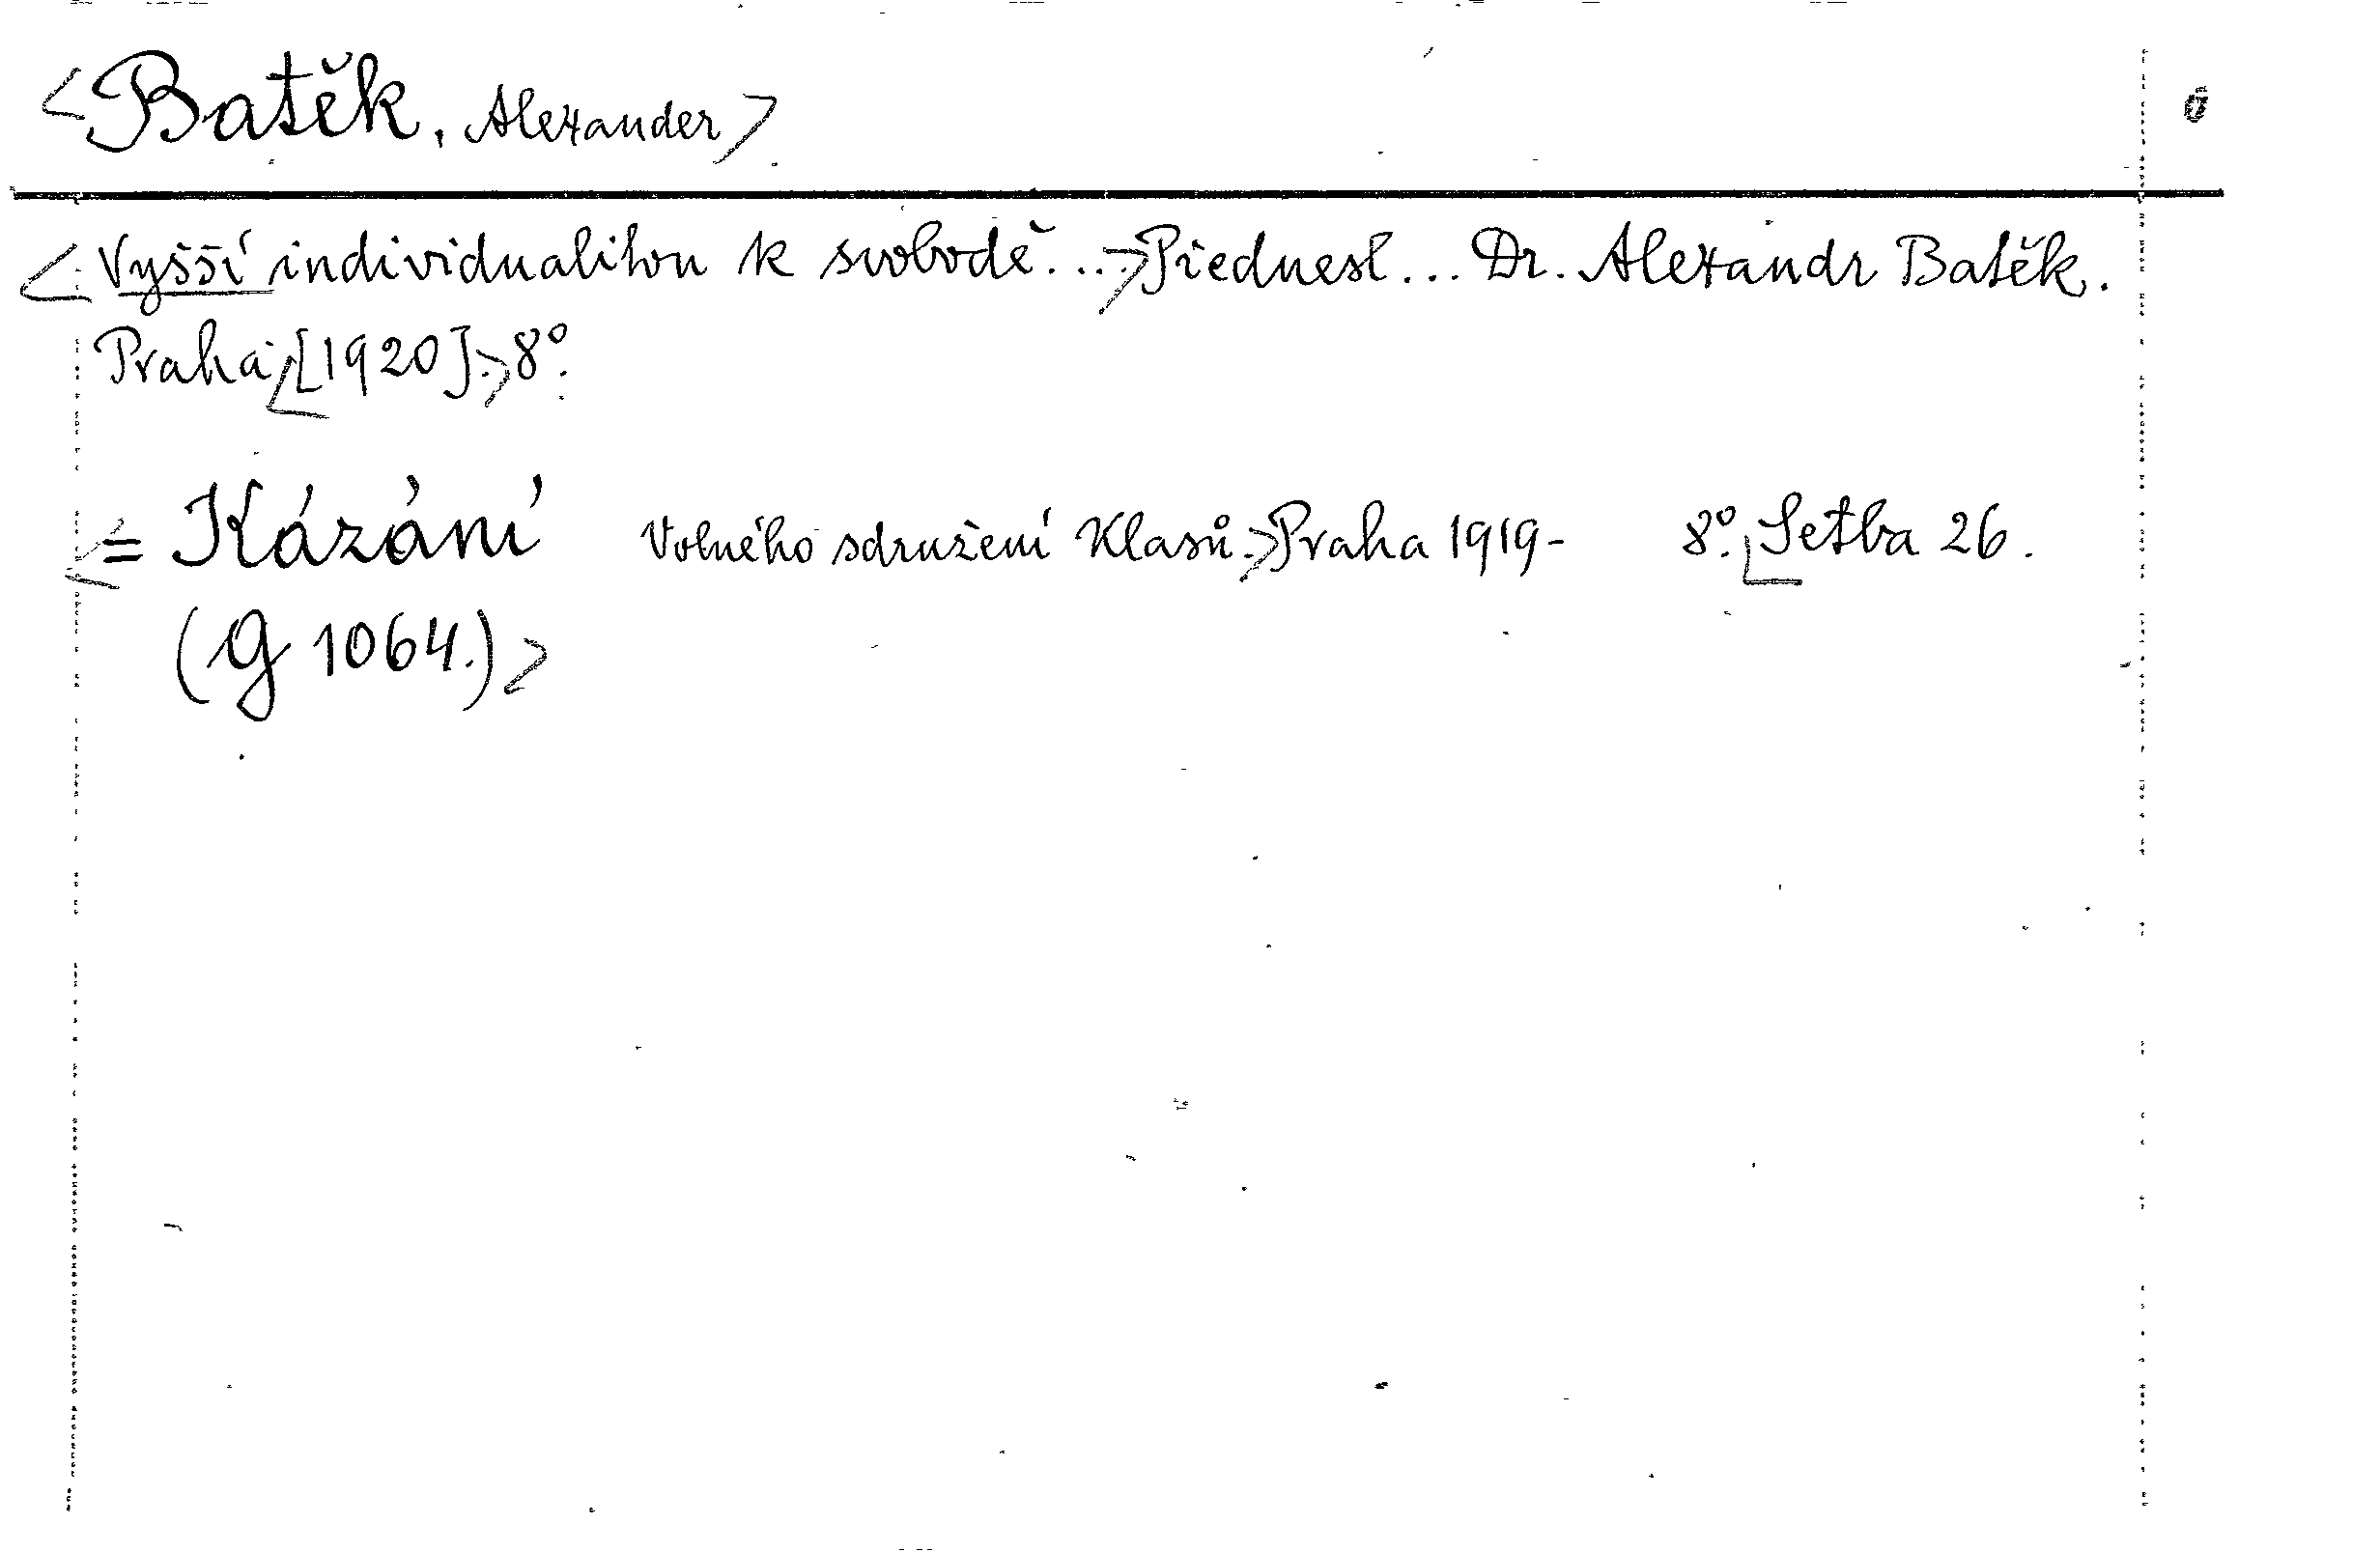 <Batěk, Alexander>
<Vyšší individualitou k svobodě...> Přednesl... Dr. Alexandr Batěk.
Praha <[1920].> 8º.
<= Kázání Volného sdružení Klasů.> Praha 1919- 8º. <Setba 26.
(G 1064.)>